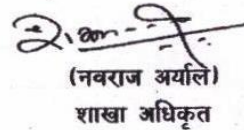 (नवराज अर्याल)
शाखा अधिकृत